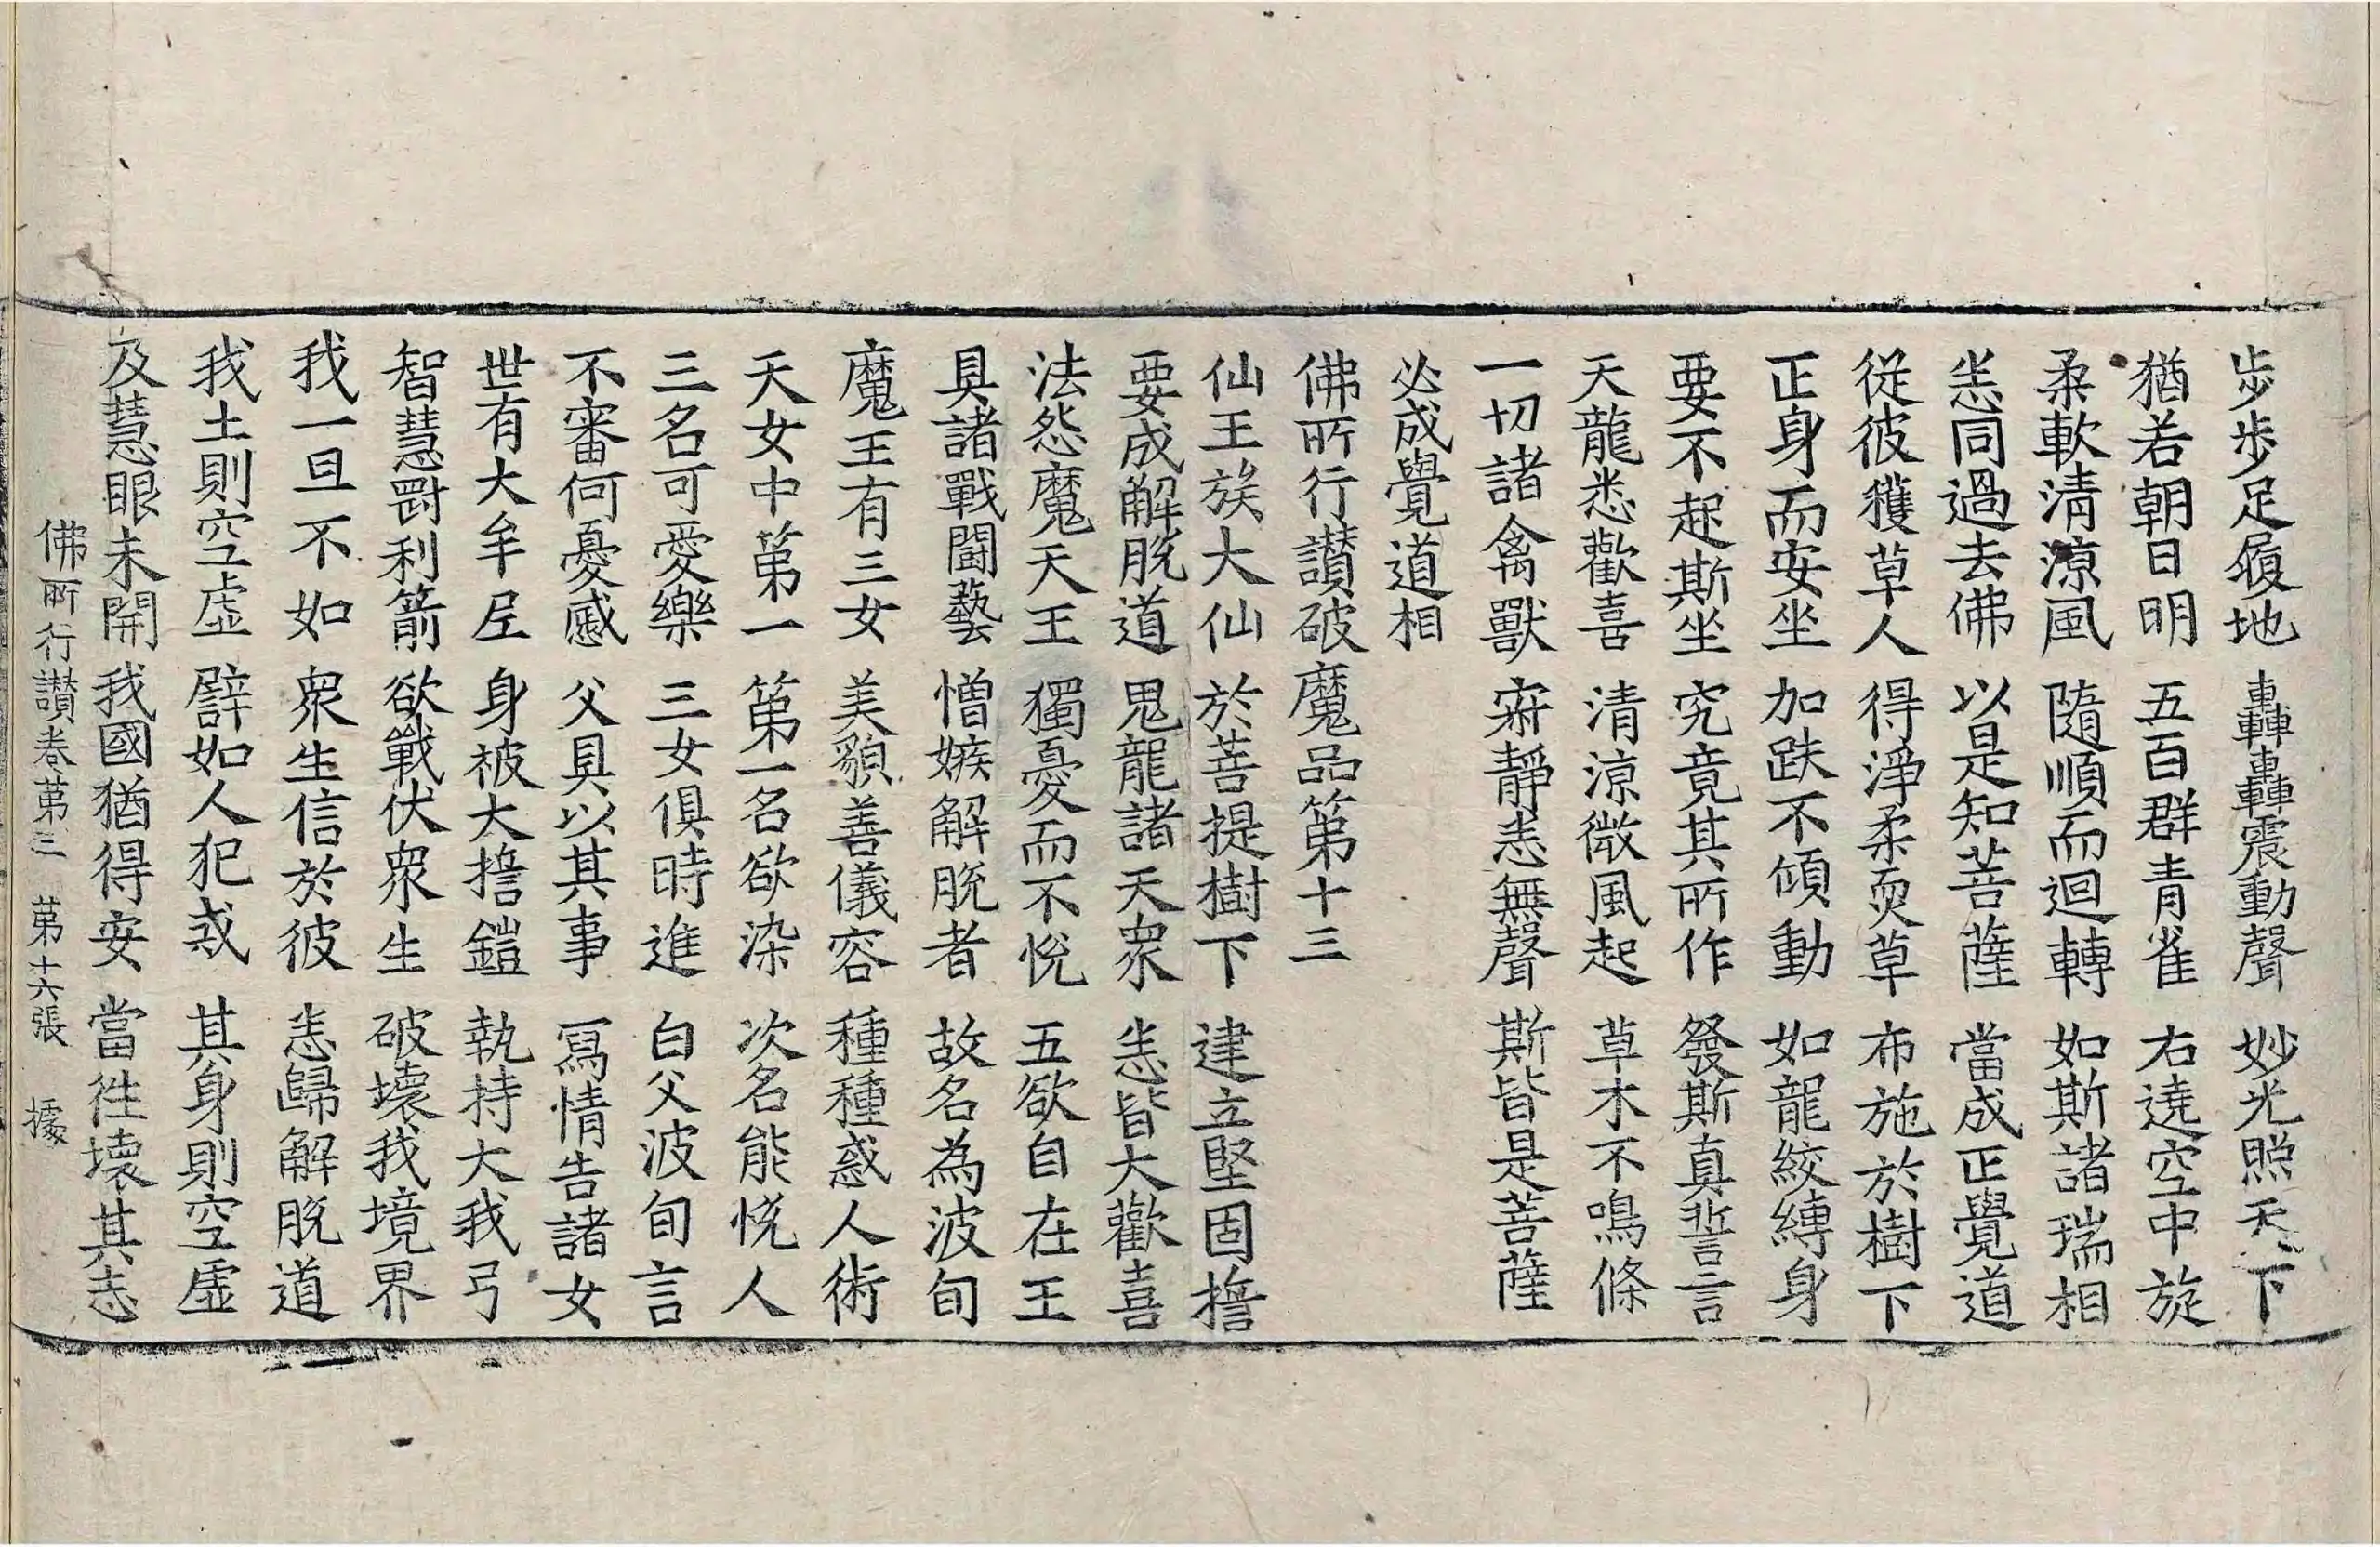 步步足履地　轟轟震動聲　妙光照天下
猶若朝日明　五百群青雀　右遶空中旋
柔軟清涼風　隨順而迴轉　如斯諸瑞相
悉同過去佛　以是知菩薩　當成正覺道
從彼穫草人　得淨柔耎草　布施於樹下
正身而安坐　加趺不傾動　如龍絞縛身
要不起斯坐　究竟其所作　發斯真誓言
天龍悉歡喜　清涼微風起　草木不鳴條
一切諸禽獸　寂靜悉無聲　斯皆是菩薩
必成覺道相
佛所行讚破魔品第十三
仙王族大仙　於菩提樹下　建立堅固擔
要成解脫道　鬼龍諸天眾　悉皆大歡喜
法怨魔天王　獨憂而不悅　五欲自在王
具諸戰鬪藝　憎嫉解脫者　故名為波旬
魔王有三女　美貌善儀容　種種惑人術
天女中第一　第一名欲染　次名能悅人
三名可愛樂　三女俱時進　白父波旬言
不審何憂慼　父具以其事　寫情告諸女
世有大牟尼　身被大擔鎧　執持大我弓
智慧剛利箭　欲戰伏眾生　破壞我境界
我一旦不如　眾生信於彼　悉歸解脫道
我土則空虛　譬如人犯戒　其身則空虛
及慧眼未開　我國猶得安　當往壞其志
佛所行讚卷第三　第十六張　據